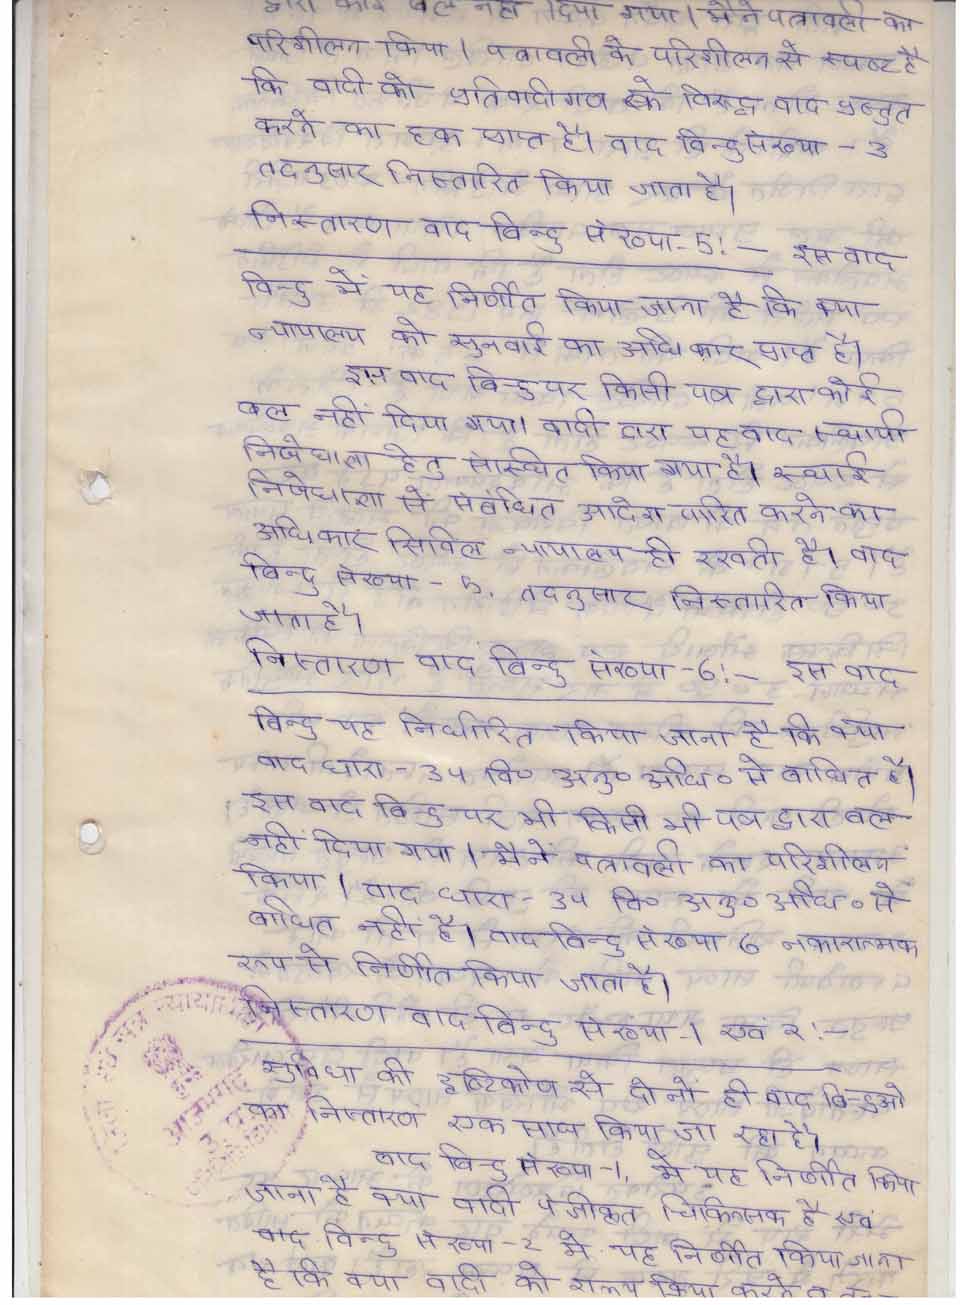 द्वारा कोई बल नहीं दिया गया। मैने पत्रावली का
परिशीलन किया। पत्रावली के परिशीलन से स्पष्ट है
कि वादी को प्रतिवादीगण के विरुद्ध वाद प्रस्तुत
करने का हक प्राप्त है। वाद विन्दु संख्या - 3
तदनुसार निस्तारित किया जाता है।
निस्तारण वाद विन्दु संख्या-5:- इस वाद
विन्दु में यह निर्णीत किया जाना है कि क्या
न्यायालय को सुनवाई का अधिकार प्राप्त है।
इस वाद विन्दु पर किसी पक्ष द्वारा कोई
बल नहीं दिया गया। वादी द्वारा यह वाद स्थायी
निषेधाज्ञा हेतु संस्थित किया गया है। स्थाई
निषेधाज्ञा से संबंधित आदेश पारित करने का
अधिकार सिविल न्यायालय ही रखती है। वाद
विन्दु संख्या - 5. तदनुसार निस्तारित किया
जाता है।
निस्तारण वाद विन्दु संख्या-6:- इस वाद
विन्दु यह निर्धारित किया जाना है कि क्या
वाद धारा - 34 वि० अनु० अधि० से बाधित है।
इस वाद विन्दु पर भी किसी भी पक्ष द्वारा बल
नहीं दिया गया। मैनें पत्रावली का परिशीलन
किया। वाद धारा - 34 वि० अनु० अधि० से
बाधित नहीं है। वाद विन्दु संख्या 6 नकारात्मक
रूप से निर्णीत किया जाता है।
निस्तारण वाद विन्दु संख्या-1 एवं २:-
सुविधा की दृष्टिकोण से दोनों ही वाद विन्दुओ
का निस्तारण एक साथ किया जा रहा है।
वाद विन्दु संख्या-1, में यह निर्णीत किया
जाना है क्या वादी पंजीकृत चिकित्सक है एवं
वाद विन्दु संख्या-2 में यह निर्णीत किया जाना
है कि क्या वादी को शल्य क्रिया करने
न्यायाधीश
आजमगढ़